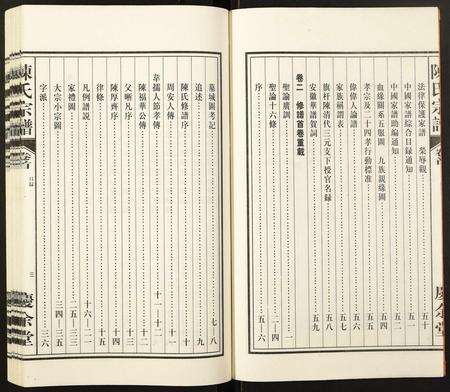 陳氏宗譜
法律保護家譜 榮辱觀……五十
中國家譜綜合目録通知……五一
中國家譜助編通知……五二
血緣關系五服圖 九族親緣圖
孝宗及二十四孝行動標准……五四
偉偉人論譜……五五
家族稱謂表……五七
旗杆陳清代三元支下授官名録……五八
安徽華譜賀詞……五九
卷二 修譜首卷重載
聖諭廣訓……一
聖諭十六條……二
序……五—六
慶余堂
墓域圖考記……七—八
追述……九
陳氏修譜序……十
周安人傳……十
韋孺人節孝傳……十一
陳福華公傳……十二
父晰凡序……十三
陳厚齊序……十四
律條……十五
凡例譜說……十六—二一
家禮圖……二二—三三
大宗小宗圖……三四—三五
字派……三六
陳氏宗譜
卷首
目録
三
慶余堂